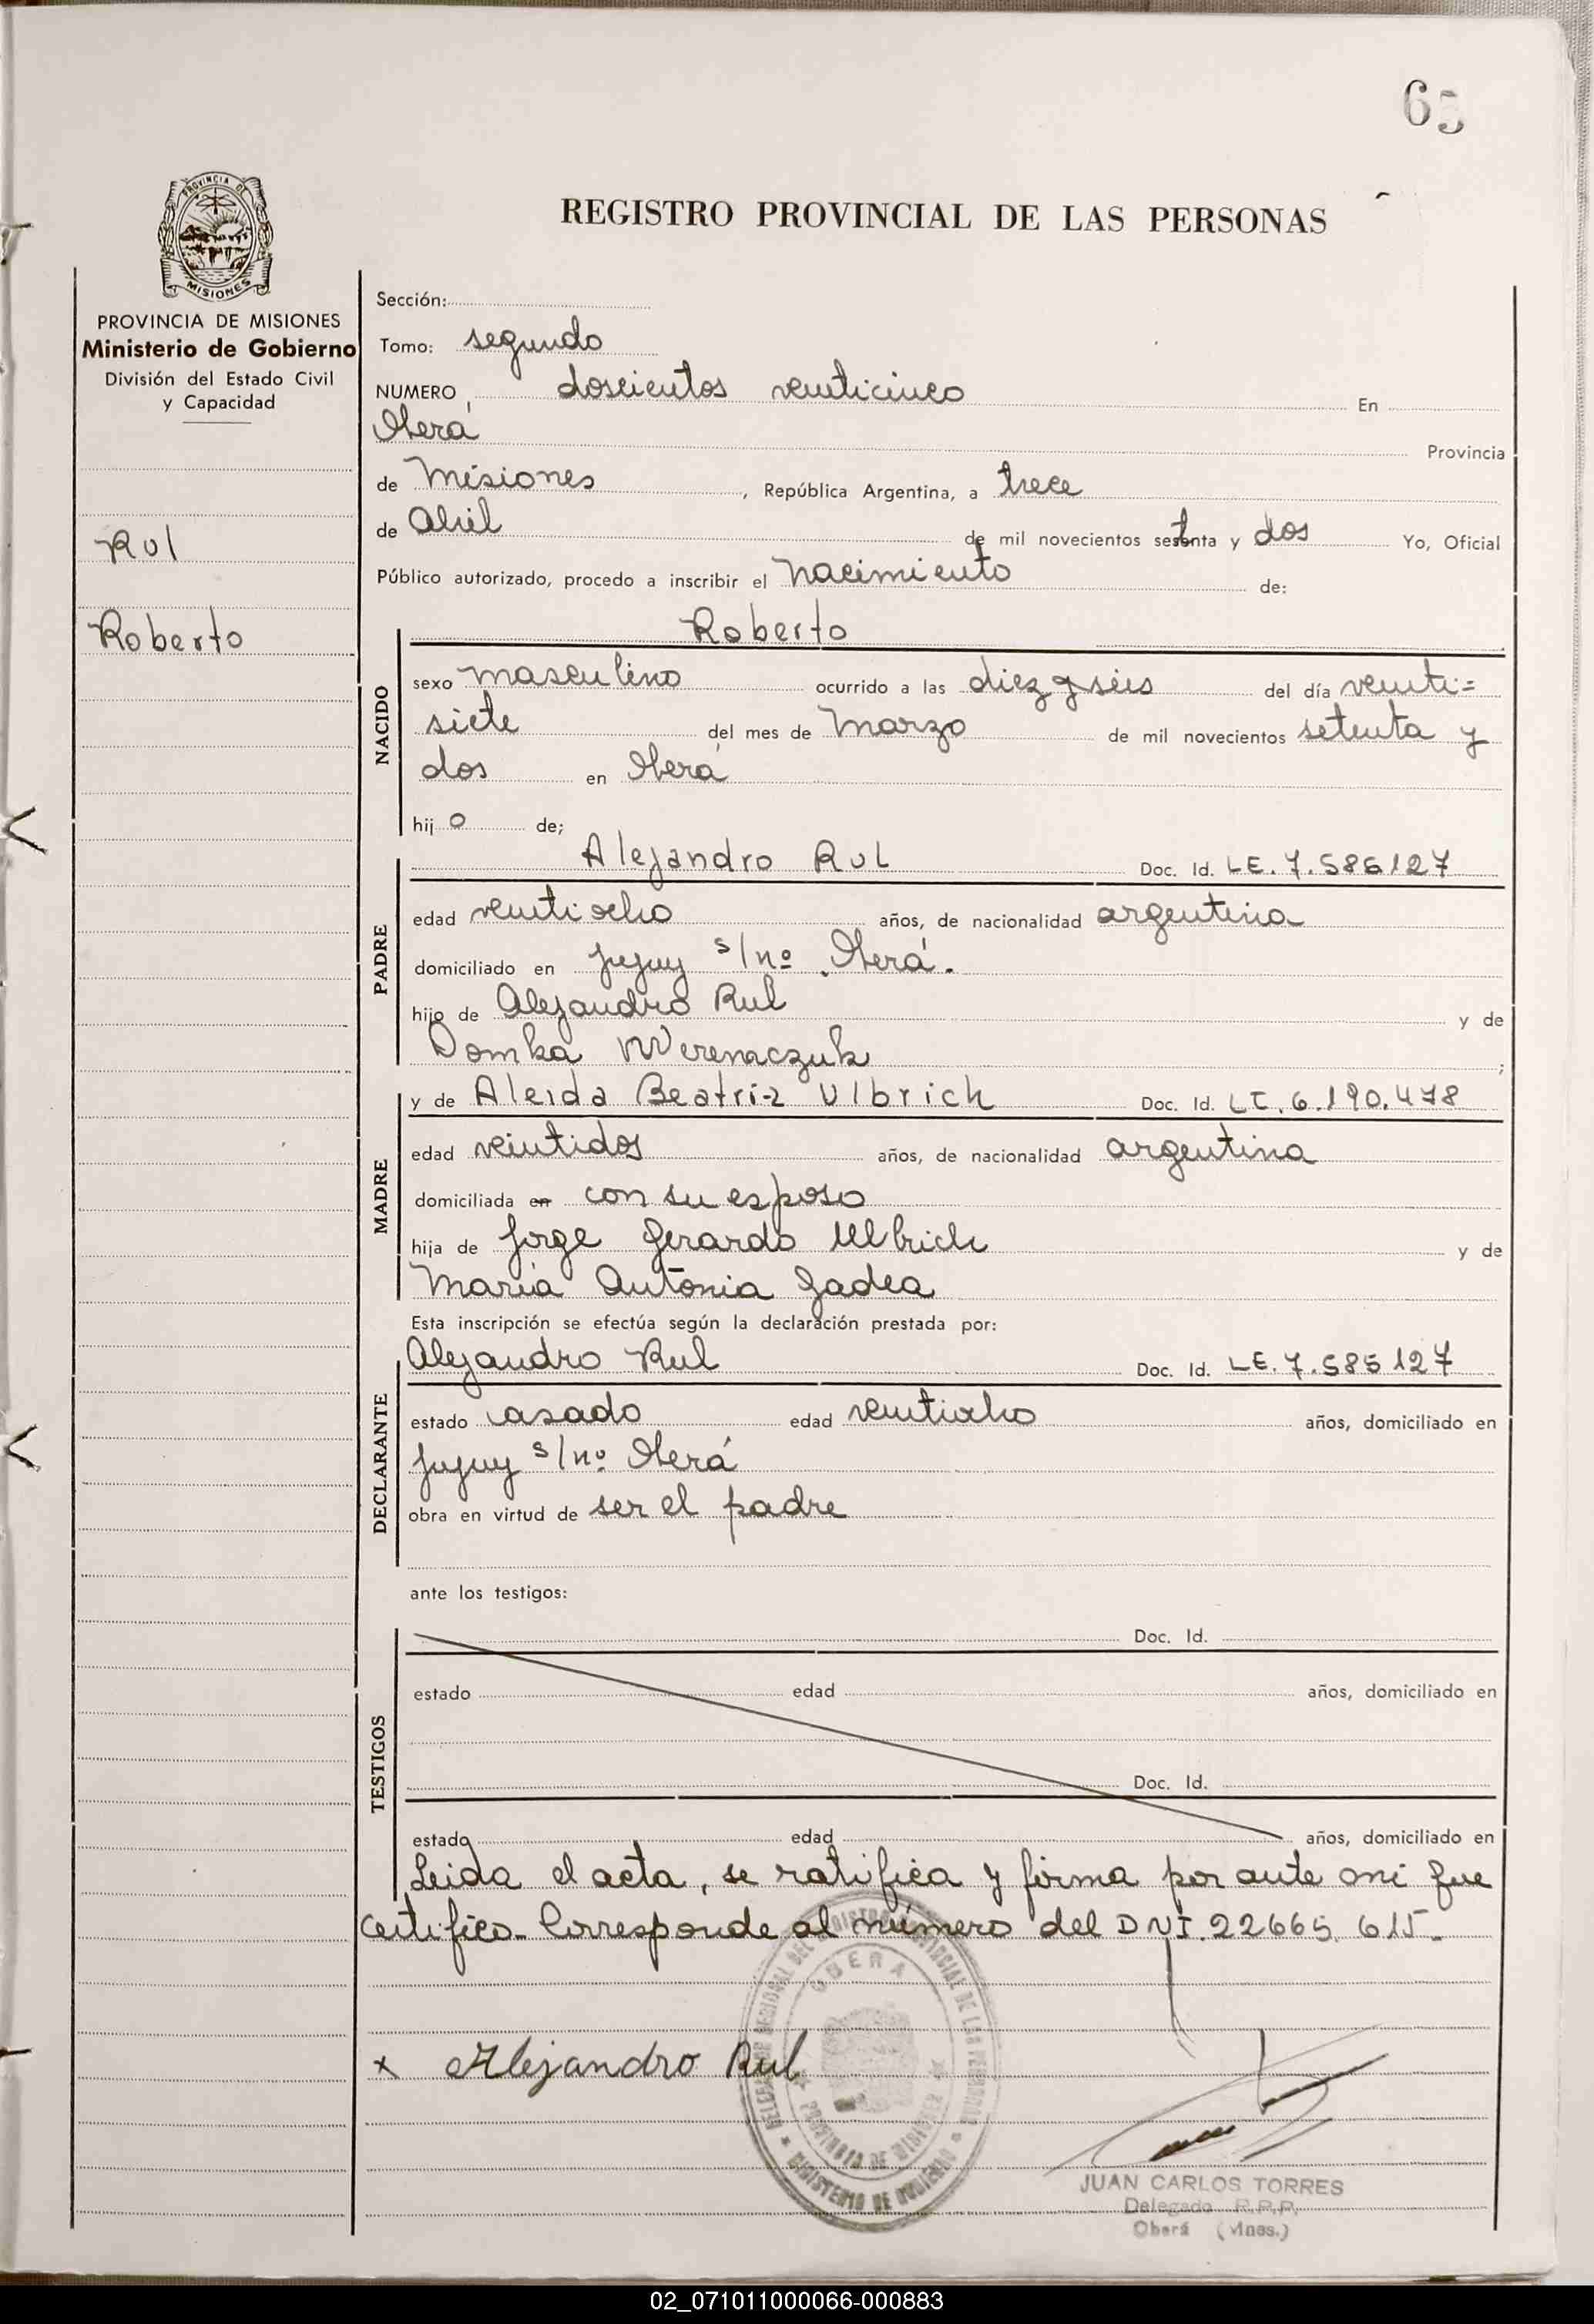 65
PROVINCIA DE
MISIONES
REGISTRO PROVINCIAL DE LAS PERSONAS
PROVINCIA DE MISIONES
Ministerio de Gobierno
División del Estado Civil
y Capacidad
Rul
Roberto
Sección:
Tomo: segundo
NUMERO doscientos veinticinco En
Oberá Provincia
de Misiones, República Argentina, a trece
de abril de mil novecientos setenta y dos Yo, Oficial
Público autorizado, procedo a inscribir el nacimiento de:
Roberto
NACIDO
sexo masculino ocurrido a las diez y seis del día veinti=
siete del mes de Marzo de mil novecientos setenta y
dos en Oberá
hijo de;
Alejandro Rul Doc. Id. LE. 7.586127
PADRE
edad veintiocho años, de nacionalidad argentina
domiciliado en Jujuy s/nº Oberá.
hijo de Alejandro Rul y de
Domka Werenaczuk;
y de Aleida Beatriz Ulbrich Doc. Id. LC. 6.190.478
MADRE
edad veintidos años, de nacionalidad argentina
domiciliada en con su esposo
hija de Jorge Gerardo Ulbrich y de
María Antonia Gadea
Esta inscripción se efectúa según la declaración prestada por:
Alejandro Rul Doc. Id. LE. 7.585127
DECLARANTE
estado casado edad veintiocho años, domiciliado en
Jujuy s/nº Oberá
obra en virtud de ser el padre
ante los testigos:
Doc. Id.
TESTIGOS
estado edad años, domiciliado en
Doc. Id.
estado edad años, domiciliado en
Leida el acta, se ratifica y firma por ante mi que
certifico. Corresponde al número del DNI. 22665. 615.
x Alejandro Rul
OBERA
PROVINCIA DE MISIONES
MINISTERIO DE GOBIERNO
JUAN CARLOS TORRES
Delegado R.P.P.
Oberá (Mnes.)
02_071011000066-000883